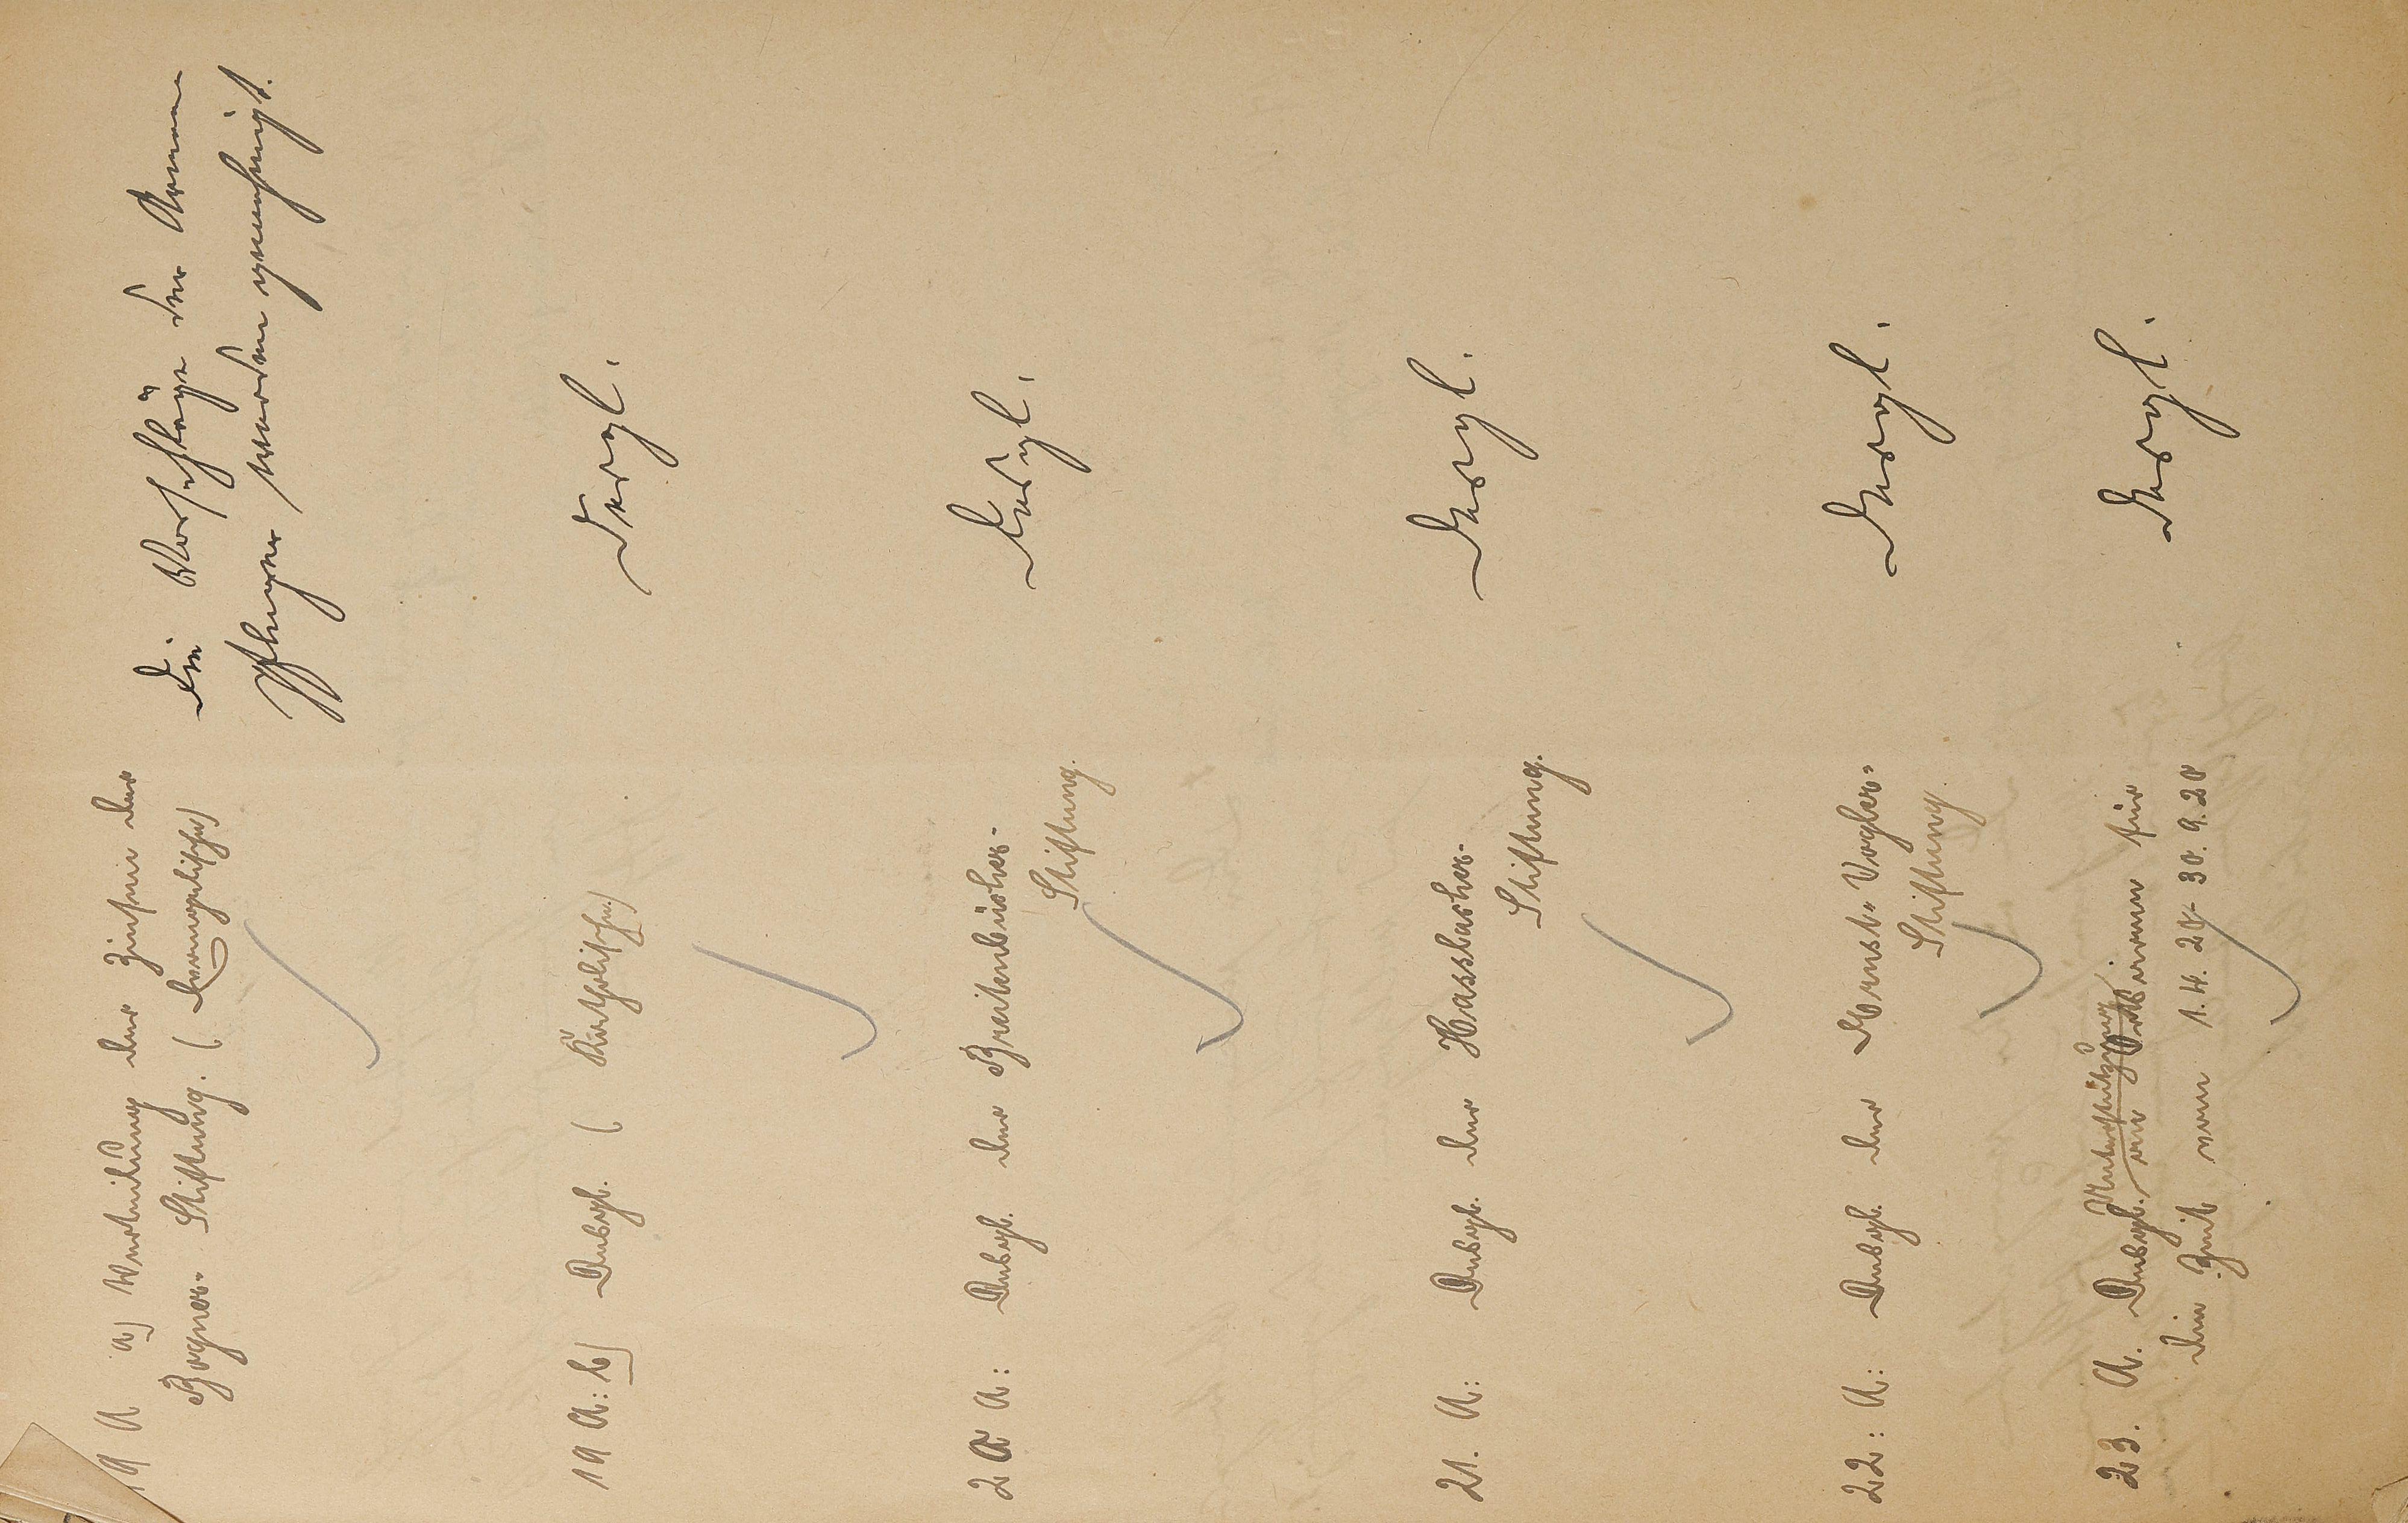 19 A a) Verteilung der Zinsen der
Bogner-Stiftung. (Evangelische)
Die Vorschläge der Armen
Pfleger werden genehmigt.
19 A: b) Desgl. (Katholische)
Dergl.
20 A: Desgl. der Breitenbücher-
Stiftung.
Desgl.
21. A: Desgl. der Hasslacher-
Stiftung.
Desgl.
22: A: Desgl. der Ernst-Vogler-
Stiftung.
Dergl.
Unterstützung
23. A. Desgl. an für
die Zeit vom 1.4.20 - 30.9.20
Desgl.